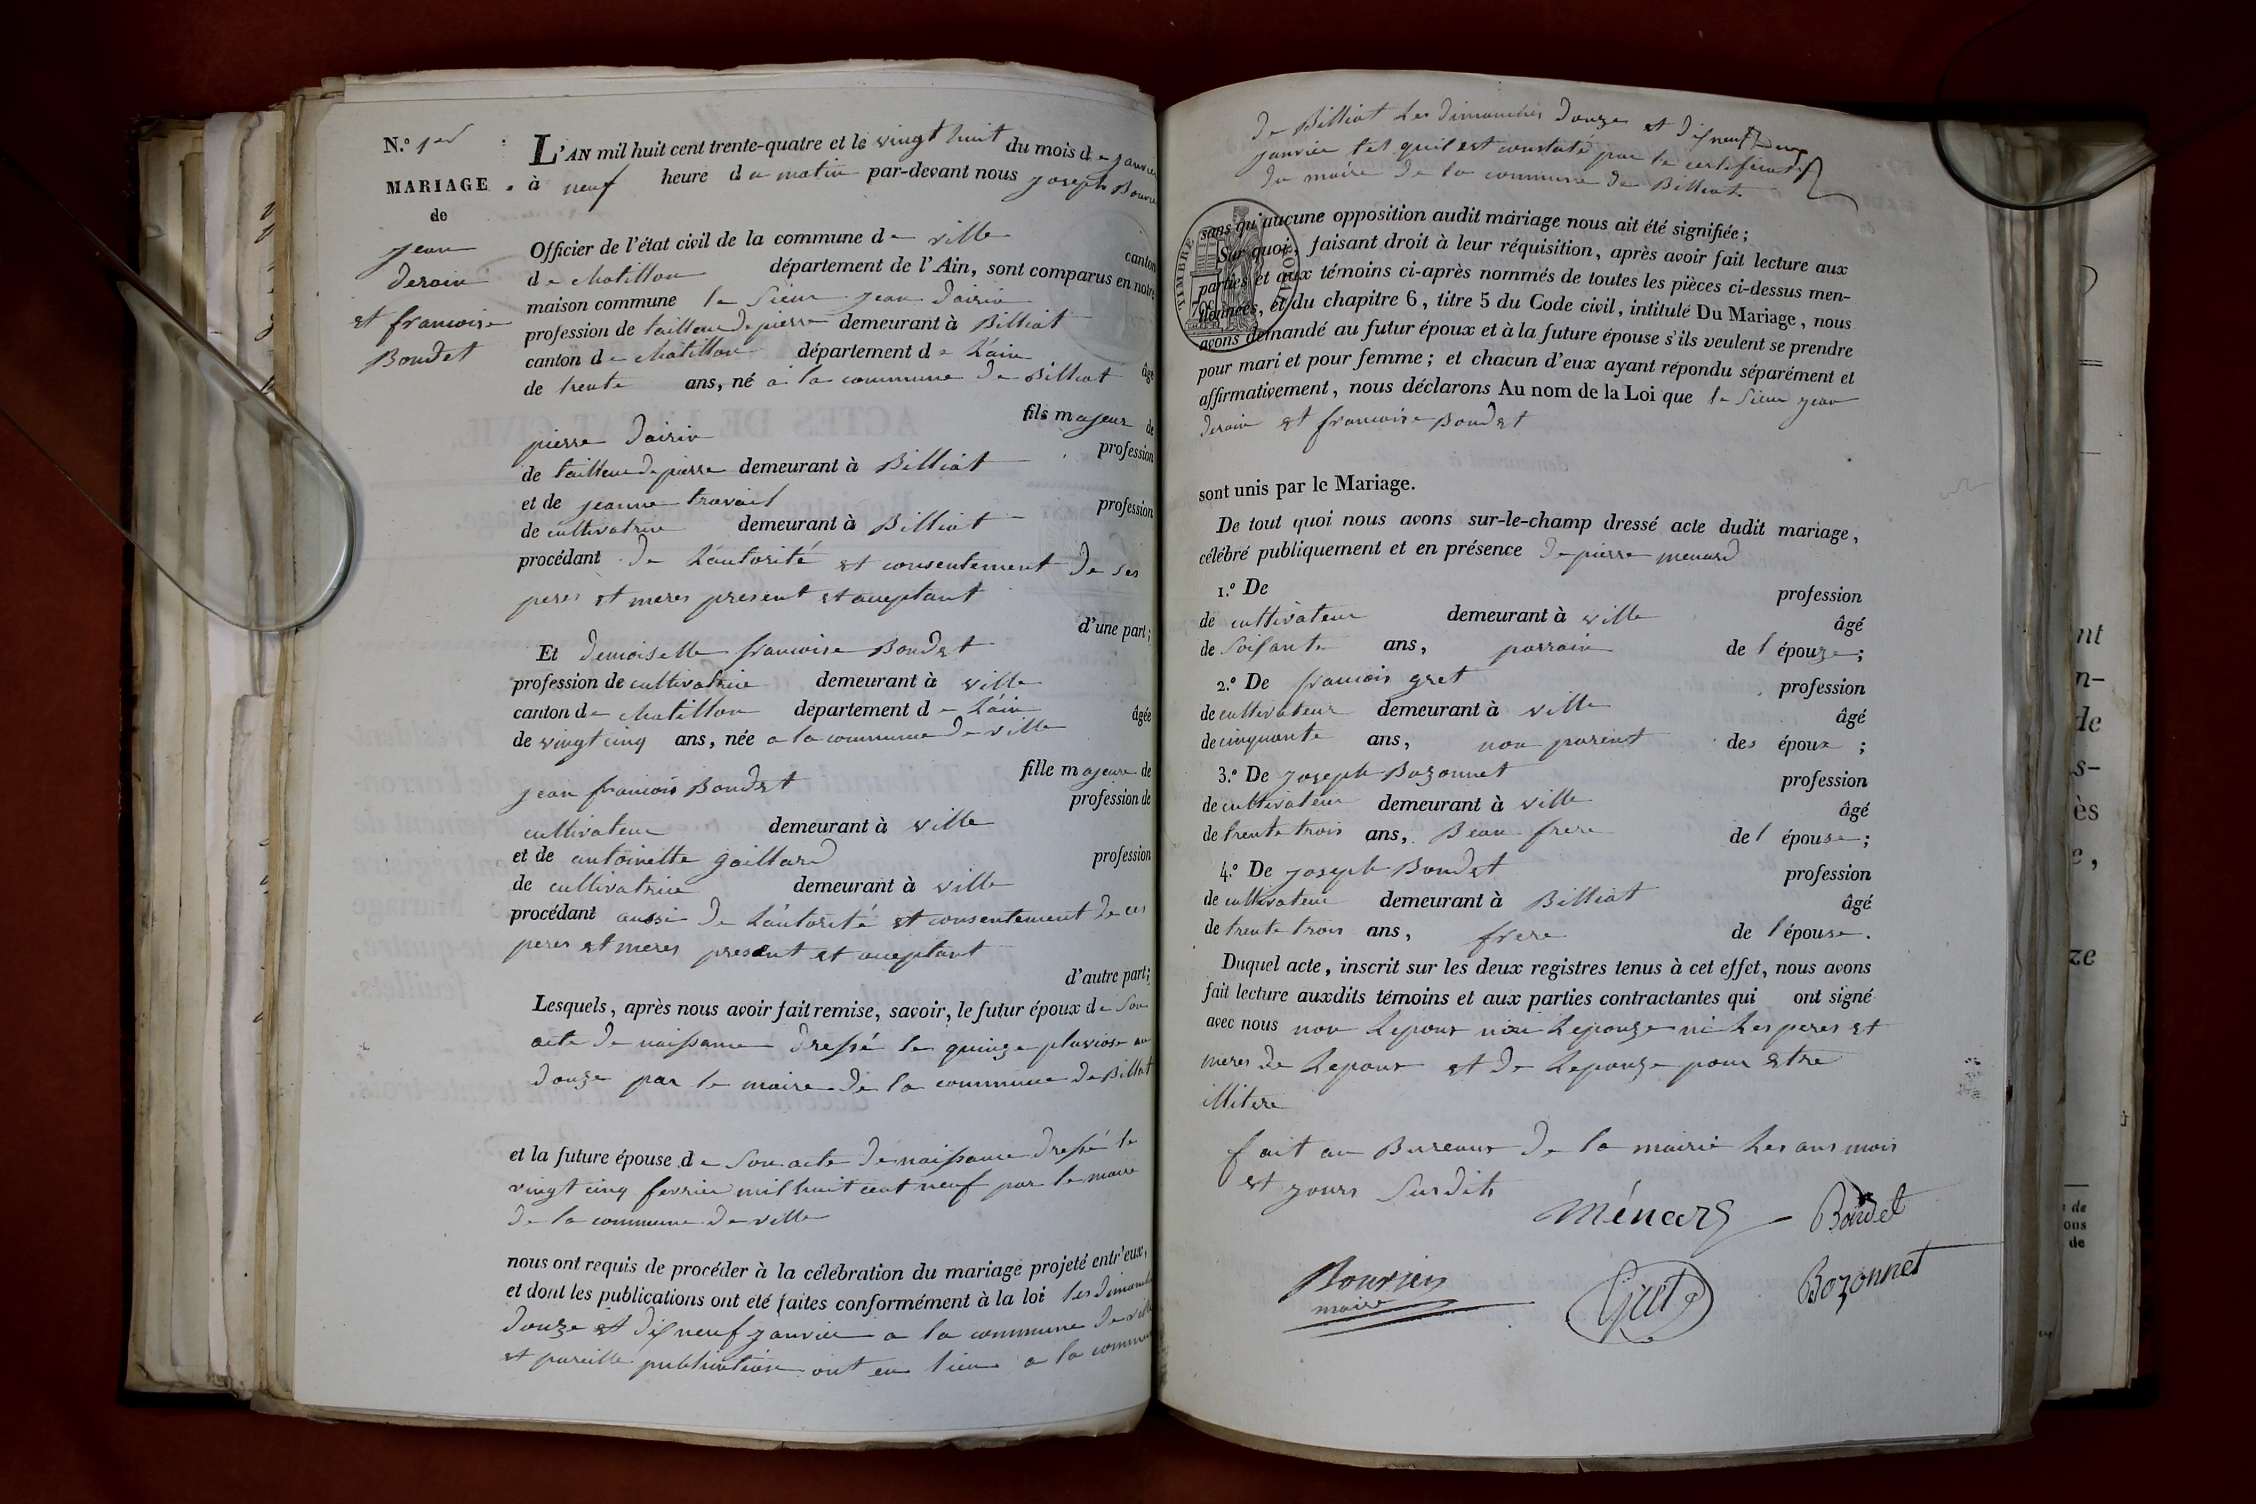 N.º 1er
MARIAGE
de
jean
derain
et francoise
Boudet
L'AN mil huit cent trente-quatre et le vingt huit du mois de janvier
à neuf heure du matin par-devant nous joseph
Officier de l'état civil de la commune de ville
canton
de chatillon département de l'Ain, sont comparus en notre
maison commune le sieur jean dairin
profession de tailleur de pierre demeurant à Billiat
canton de chatillon département de L'ain
âgé
de trente ans, né a la commune de Billiat
fils majeur de
pierre dairin
profession
de tailleur de pierre demeurant à Billiat
et de jeanne travail
profession
de cultivatrice demeurant à Billiat
procédant de L'autorité et consentement de ses
peres et meres present et aceptant
d'une part;
Et demoiselle francoise Boudet
profession de cultivatrice demeurant à ville
canton de chatillon département de L'ain
âgée
de vingt cinq ans, née a la commune de ville
fille majeure de
jean francois Boudet
profession de
cultivateur demeurant à ville
et de antoinette gaillard
profession
de cultivatrice demeurant à ville
procédant aussi de L'autorité et consentement de ces
peres et meres present et aceptant
d'autre part;
Lesquels, après nous avoir fait remise, savoir, le futur époux de son
acte de naissance dressé le quinze pluviose an
douze par le maire de la commune de Billiat
et la future épouse de son acte de naissance dressé le
vingt cinq fevrier mil huit cent neuf par le maire
de la commune de ville
nous ont requis de procéder à la célébration du mariage projeté entr'eux,
et dont les publications ont été faites conformément à la loi les dimanche
douze et dix neuf janvier a la commune de ville
et pareille publication ont eu lieu a la commune
de Billiat Les dimanches douze et dix neuf
janvier tel quil est constaté par le certificat
du maire de la commune de Billiat.
TIMBRE ROYAL
70c
sans qu'aucune opposition audit mariage nous ait été signifiée;
Sur quoi, faisant droit à leur réquisition, après avoir fait lecture aux
parties et aux témoins ci-après nommés de toutes les pièces ci-dessus men-
tionnées, et du chapitre 6, titre 5 du Code civil, intitulé Du Mariage, nous
avons demandé au futur époux et à la future épouse s'ils veulent se prendre
pour mari et pour femme; et chacun d'eux ayant répondu séparément et
affirmativement, nous déclarons Au nom de la Loi que le sieur jean
derain et francoise Boudet
sont unis par le Mariage.
De tout quoi nous avons sur-le-champ dressé acte dudit mariage,
célébré publiquement et en présence de pierre menard
1.º De
profession
de cultivateur demeurant à ville
âgé
de soisante ans, parrain de l'épouze;
2.º De francois gret
profession
de cultivateur demeurant à ville
âgé
de cinquante ans, non parent des époux;
3.º De joseph Bozonnet
profession
de cultivateur demeurant à ville
âgé
de trente trois ans, Beau frere de l'épouse;
4.º De joseph Boudet
profession
de cultivateur demeurant à Billiat
âgé
de trente trois ans, frere de l'épouse.
Duquel acte, inscrit sur les deux registres tenus à cet effet, nous avons
fait lecture auxdits témoins et aux parties contractantes qui ont signé
avec nous non Lepoux non Lepouze ni Les peres et
meres de Lepoux et de Lepouze pour etre
illitere
fait au Bureaux de la mairie Les ans mois
et jours susdits
Ménard
Boudet
maire
Gret
Bozonnet